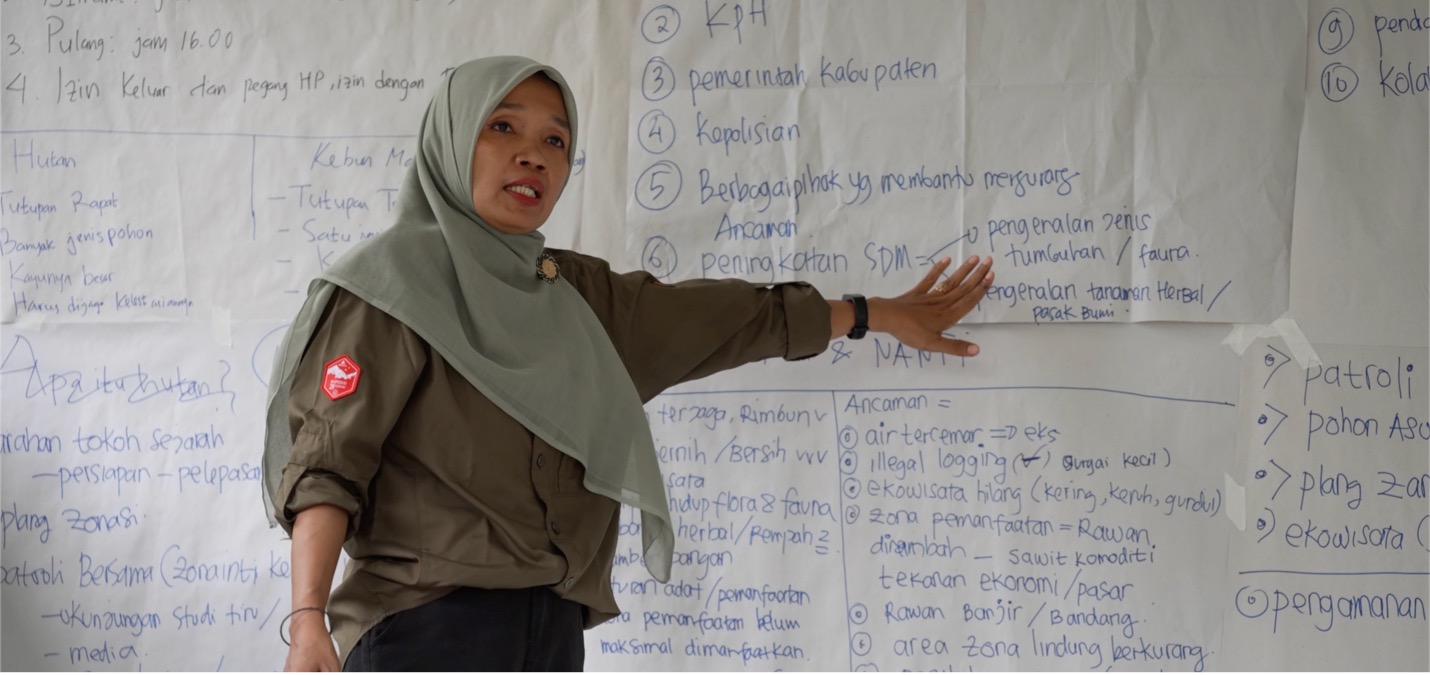 3. Pulang: jam 16.00
4. Izin Keluar dan pegang HP, izin dengan
Hutan
Tutupan Rapat
Banyak jenis pohon
Kayunya besar
Harus dijaga
Kebun
- Tutupan
- Satu
Apa itu hutan?
tokoh sejarah
- persiapan - pelepasa
plang zonasi
patroli Bersama (zona inti,
studi tiru /
- media.
② KPH
③ pemerintah Kabupaten
④ Kepolisian
⑤ Berbagai pihak yg membantu mengurang
Ancaman.
⑥ peningkatan SDM =
pengenalan jenis
tumbuhan / fauna.
pengenalan tanaman Herbal /
pasak Bumi.
& NANTI
terjaga, Rimbun v
ernih / Bersih vvv
sata
hidup flora & fauna
herbal / Rempah 2
pangan
adat / pemanfaatan
pemanfaatan belum
maksimal dimanfaatkan.
Ancaman =
air tercemar. => eks
illegal logging (sungai kecil)
ekowisata hilang (kering, keruh, gundul)
zona pemanfaatan = Rawan
dirambah - sawit komoditi
tekanan ekonomi / pasar
Rawan Banjir / Bandang.
area zona lindung berkurang.
⑨ penda
⑩ Kola
patroli
pohon Aso
plang zon
ekowisata (
pengamanan